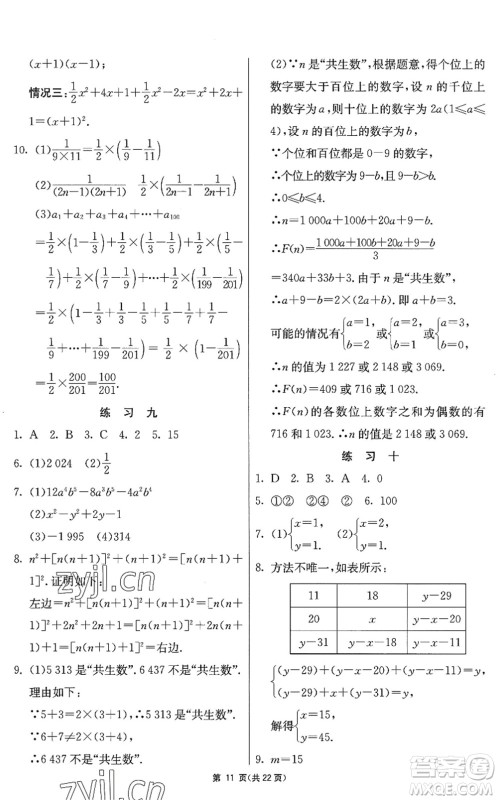 (x+1)(x-1);
情况三:1/2x²+4x+1+1/2x²-2x=x²+2x+
1=(x+1)².
10. (1)1/(9×11)=1/2×(1/9-1/11)
(2)1/((2n-1)(2n+1)) 1/2×(1/(2n-1)-1/(2n+1))
(3)a₁+a₂+a₃+…+a₁₀₀
=1/2×(1-1/3)+1/2×(1/3-1/5)+1/2×(1/5-
1/7)+1/2×(1/7-1/9)+…+1/2×(1/199-1/201)
=1/2×(1-1/3+1/3-1/5+1/5-1/7+1/7-
1/9+…+1/199-1/201)=1/2×(1-1/201)
=1/2×200/201=100/201.
练 习 九
1. A 2. B 3. C 4. 2 5. 15
6. (1)2 024 (2)1/2
7. (1)12a⁴b⁵-8a³b⁴-4a²b⁴
(2)x²-y²+2y-1
(3)-1 995 (4)314
8. n²+[n(n+1)]²+(n+1)²=[n(n+1)+
1]². 证明如下:
左边=n²+[n(n+1)]²+n²+2n+1
=[n(n+1)]²+2n²+2n+1
=[n(n+1)]²+2n(n+1)+1
=[n(n+1)+1]²=右边.
9. (1)5 313是“共生数”. 6 437不是“共生数”.
理由如下:
∵5+3=2×(3+1),∴5 313是“共生数”.
∵6+7≠2×(3+4),
∴6 437不是“共生数”.
(2)∵n是“共生数”,根据题意,得个位上的
数字要大于百位上的数字,设n的千位上
的数字为a,则十位上的数字为2a(1≤a≤
4),设n的百位上的数字为b,
∵个位和百位都是0—9的数字,
∴个位上的数字为9-b,且9-b>b.
∴0≤b≤4.
∴n=1 000a+100b+20a+9-b.
∴F(n)=(1 000a+100b+20a+9-b)/3
=340a+33b+3. 由于n是“共生数”,
∴a+9-b=2×(2a+b),即a+b=3,
可能的情况有{a=1,b=2或{a=2,b=1或{a=3,b=0,
∴n的值为1 227或2 148或3 069.
∴F(n)=409或716或1 023.
∴F(n)的各数位上数字之和为偶数的有
F(n)=716或1 023. ∴n是2 148或3 069.
练 习 十
1. D 2. B 3. A 4. 0
5. ①② ②④ ② 6. 100
7. (1){x=1,y=1. (2){x=2,y=1.
8. 方法不唯一,如表所示:
11 18 y-29
20 x y-x-20
y-31 y-x-18 y-x-11
{(y-29)+(y-x-20)+(y-x-11)=y,
(y-29)+x+(y-31)=y,
解得{x=15,y=45.
9. m=15
第 11 页(共 22 页)
zyjl.cn
zyjl.cn
答案圈
MXQE.COM